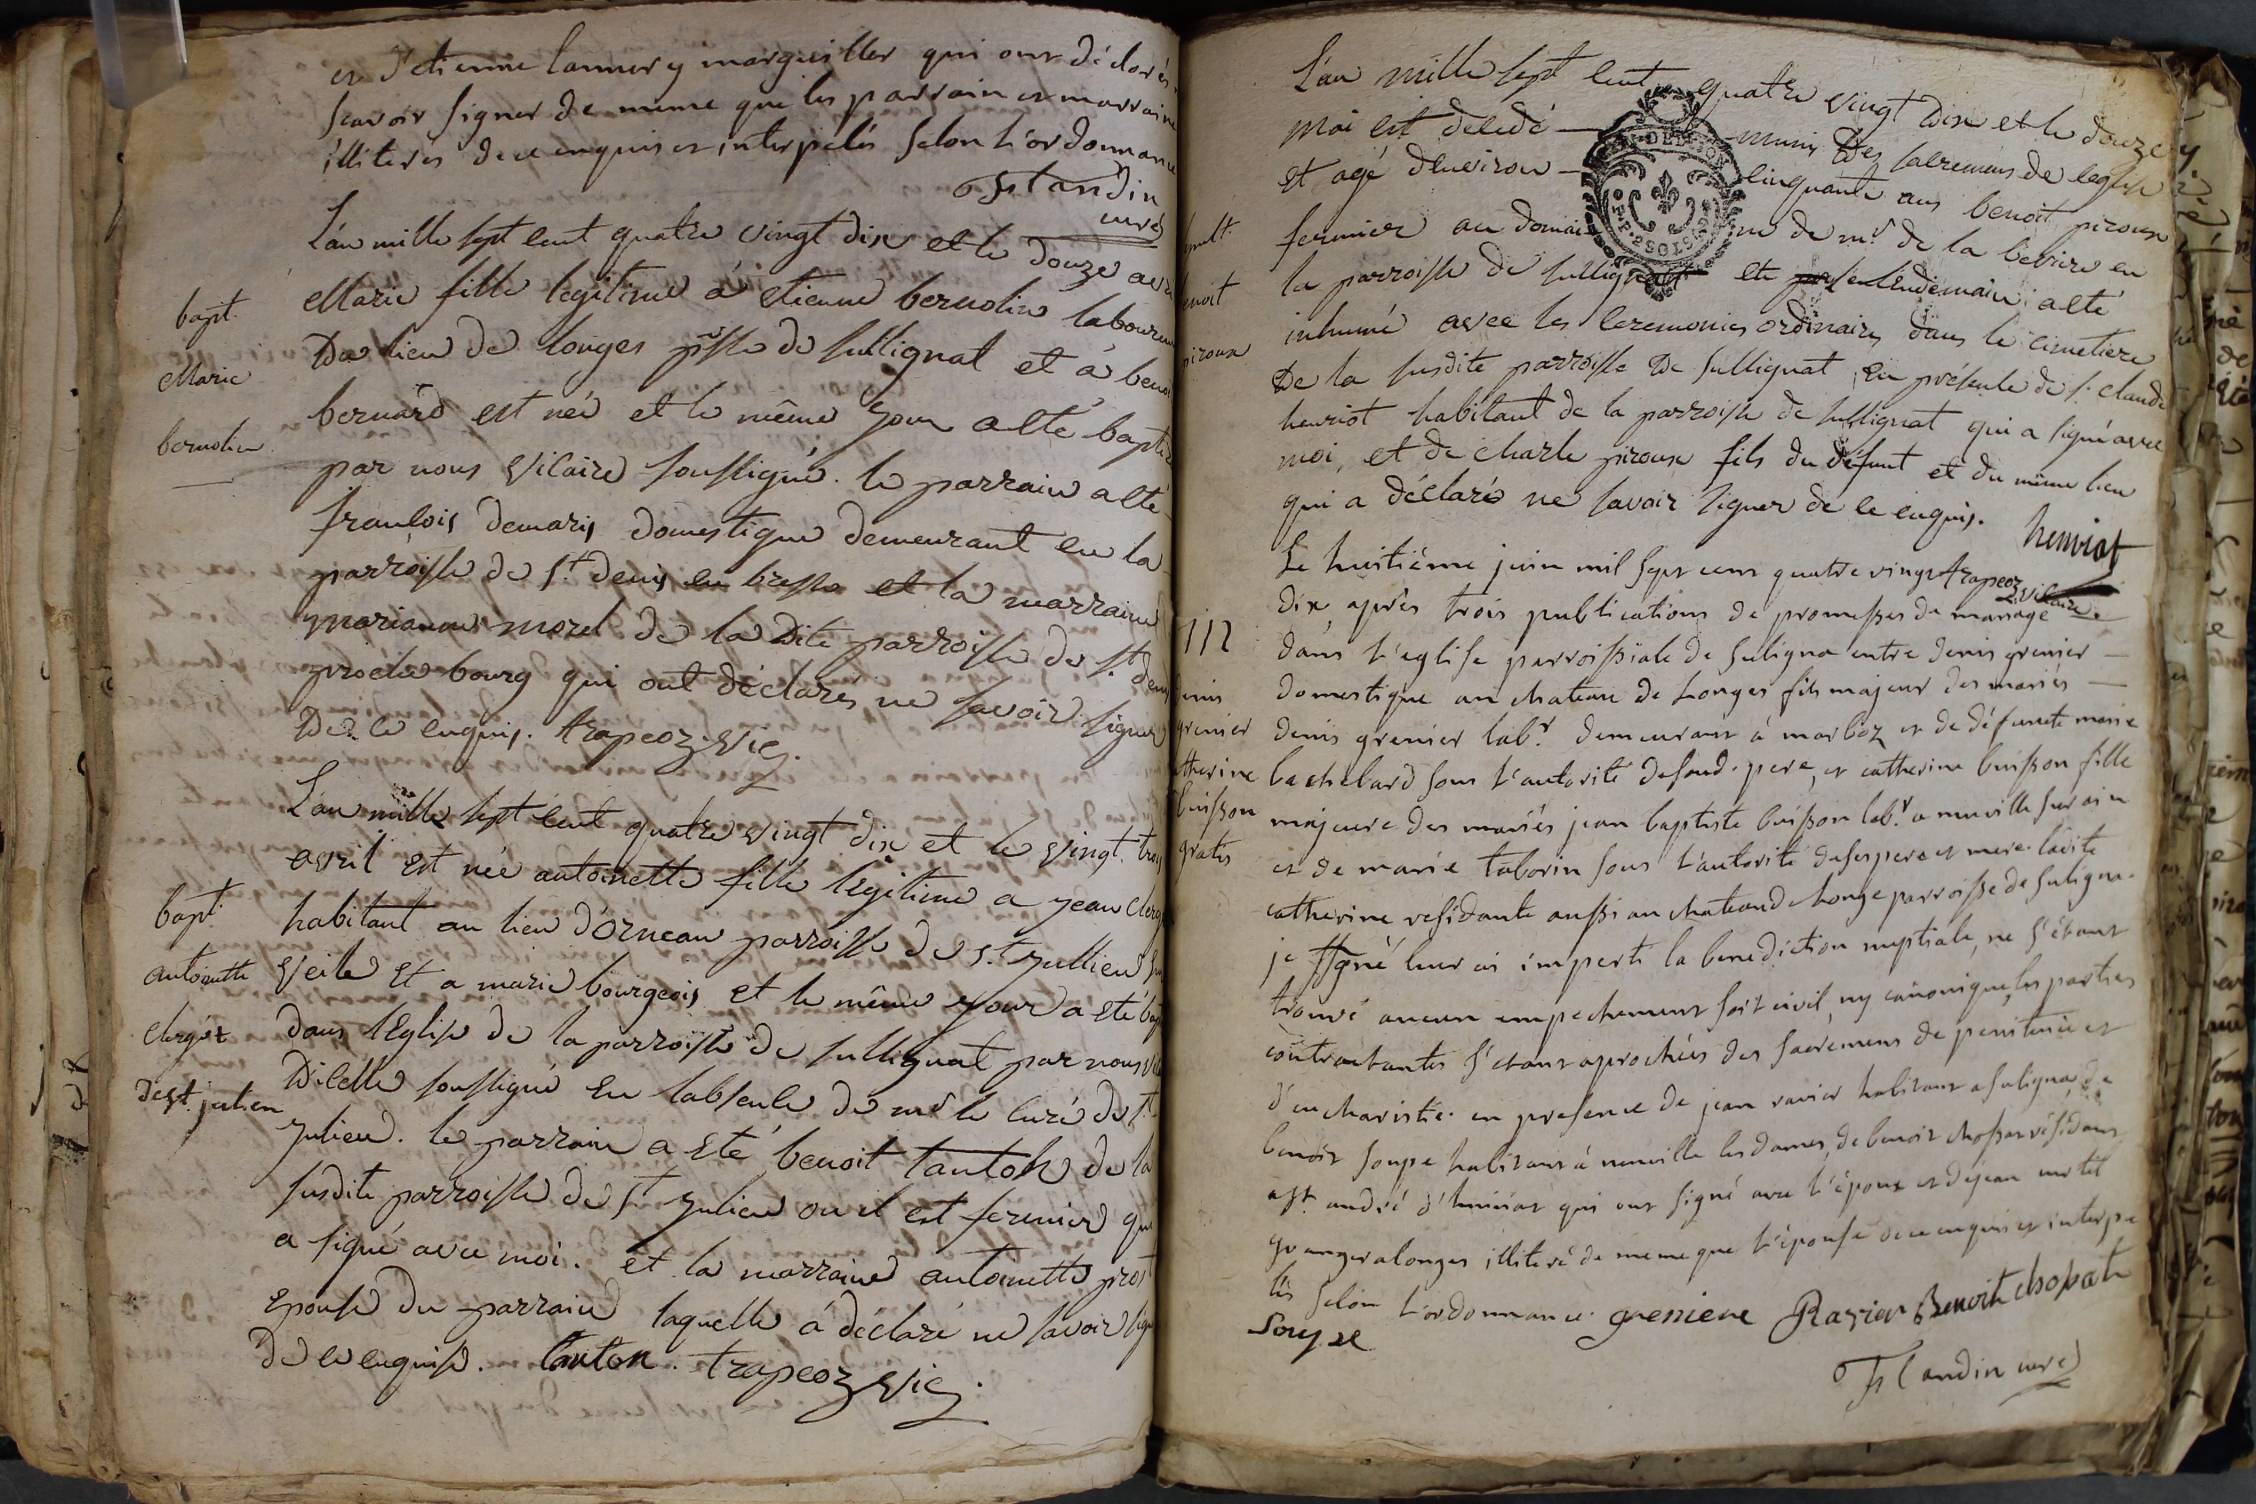 et d'etienne lannery marguiller qui ont déclarés
scavoir signer de meme que les parrain et marraine
illiterés de ce enquis et interpelés selon l'ordonnance
flandin
curé
L'an mille sept cent quatre vingt dix et le douze avril
bapt.
Marie
bernolin
Marie fille legitime á etienne bernolin laboureur
Du lieu de longes psse de sullignat et á benoi
bernard est née et le même jour a eté baptis
par nous vicaire soussigné. le parrain a eté
françois demaris domestique demeurant en la
parroisse de st. denis en bresse et la marraine
marianne morel de la Dite parroisse de st. denis
proche bourg qui ont déclarés ne savoir signer
De ce enquis. trapeoz vic.
L'an mille sept cent quatre vingt dix et le vingt. trois
bapt.
antoinette
clerget
de st. julien
avril est née antoinette fille legitime a jean clerget
habitant au lieu d'orneau parroisse de st jullien sur
veile et a marie bourgeois et le même jour a eté bap
dans l'Eglise de la parroisse de sullignat par nous vic
Dicelle soussigné En l'absence de mr le curé de st
julien. le parrain a eté benoit tanton de la
susdite parroisse de st julien ou il est fermier qui
a signé avec moi. et la marraine antoinette prost
Epouse du parrain laquelle á déclaré ne savoir sign
de ce enquise. tanton. trapeoz vic.
L'an mille sept cent quatre vingt Dix et le douze
mai est decedé munis Des sacremens de leglise
et agé denviron cinquante ans benoit piroux
fermier au domaine de mr. de la beviere en
la parroisse de sullignat et le lendemain a eté
inhumé avec les ceremonies ordinaires dans le cimetiere
De la susdite parroisse De sullignat, En présence de s. claude
henriot habitant de la parroisse de sullignat qui a signé avec
moi, et de charle piroux fils du défunt et du même lieu
qui a déclarés ne savoir signer de ce enquis.
enoit
piroux
henriot
trapeoz
vicaire.
Le huitiéme juin mil sept cent quatre vingt
dix, après trois publications de promesses de mariage
dans l'eglise parroissiale de suligna entre denis grenier
domestique au chateau de Longes fils majeur des mariés
denis grenier labr. demeurant á marboz et de défunte marie
bachelard sous l'autorité de son d. pere, et catherine buisson fille
majeure des mariés jean baptiste buisson labr. a neuville sur ain
et de marie taborin sous l'autorité de ses pere et mere. ladite
catherine residante aussi au chateau de Longe parroisse de suligna.
je ssgné leur ai imparti la benediction nuptiale, ne s'étant
trouvé aucun empechement soit civil, ny canonique, les parties
contractantes s'etant aprochées des sacremens de penitence et
d'eucharistie. en presence de jean ravier habitant a suligna, de
benoit soupe habitant á neuville les dames, de benoit chossat résidant
a st. andré d'huiriat qui ont signé avec l'époux et de jean mortel
granger a longes illiteré de meme que l'épouse de ce enquis et interpe
lés selon l'ordonnance. greniere Ravier Benoit chosat
Soupe
flandin curé
112
denis
grenier
catherine
buisson
gratis